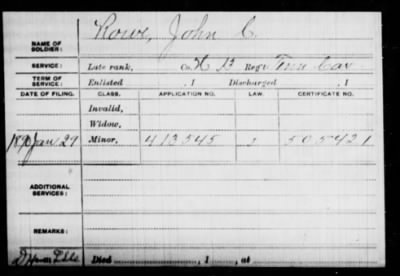 Rowe, John C.
NAME OF
SOLDIER:
SERVICE: Late rank, Co. K 13 Reg't Tenn Cav
TERM OF
SERVICE: Enlisted , 1 Discharged , 1
DATE OF FILING. CLASS. APPLICATION NO. LAW. CERTIFICATE NO.
Invalid,
Widow,
Jan 29 Minor, 413545 505421
ADDITIONAL
SERVICES:
REMARKS:
Died , 1 , at